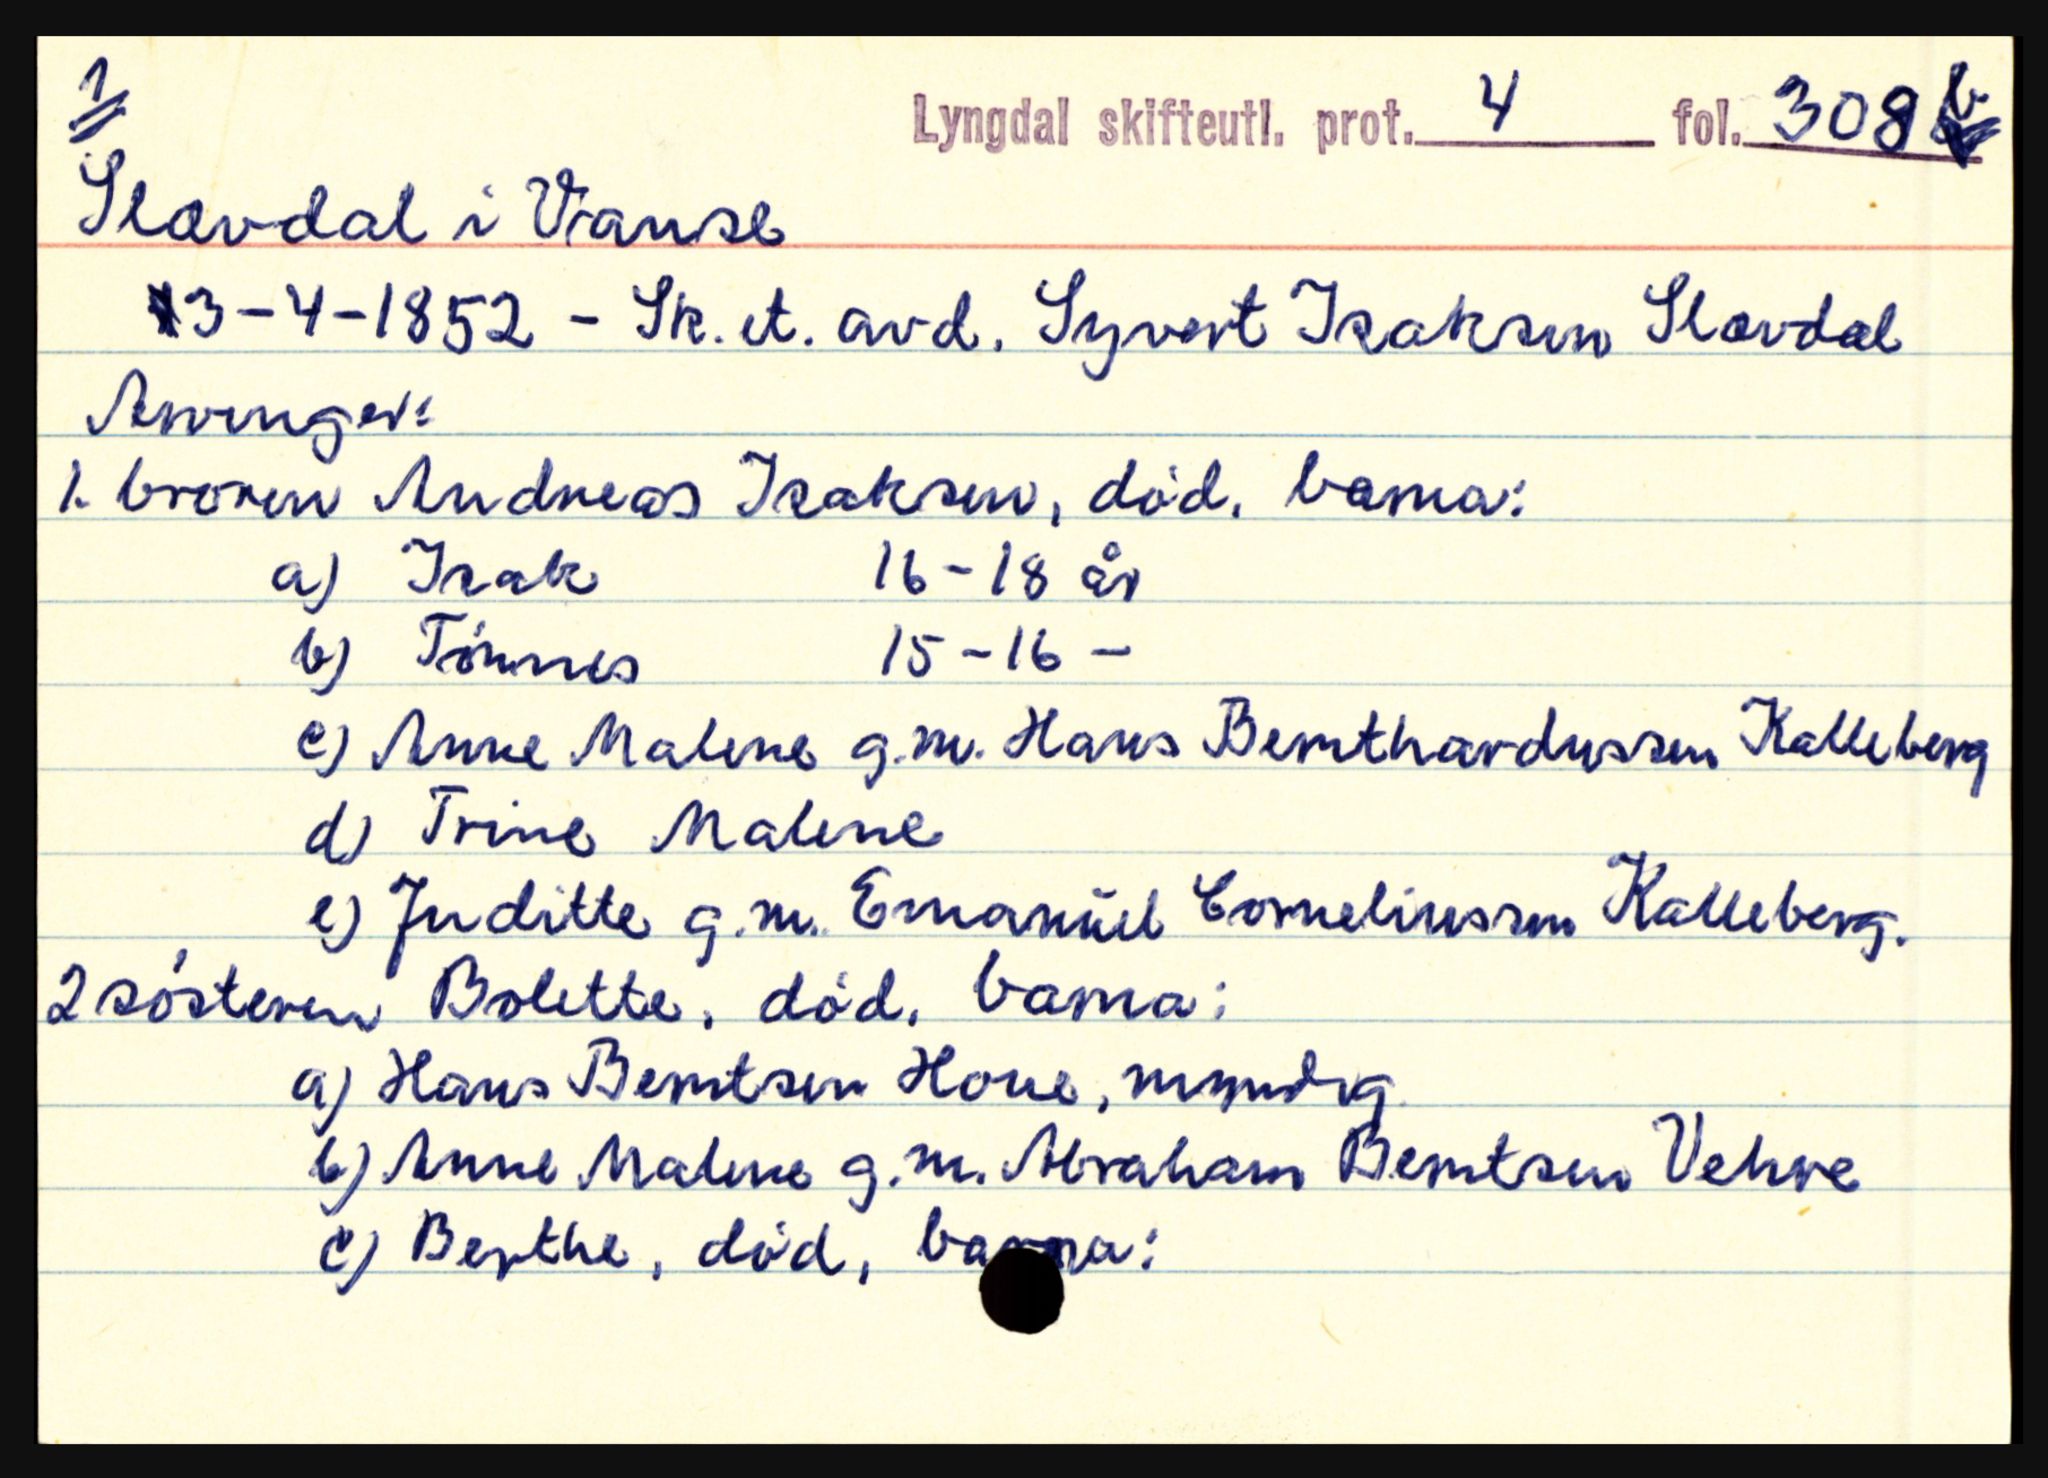 1
Lyngdal skifteutl. prot. 4 fol. 308 b
Slævdal i Vanse
13-4-1852 - Sk. et. avd. Syvert Isaksen Slævdal
Arvinger:
1. broren Andreas Isaksen, død, barna:
a) Isak 16-18 år
b) Tónnes 15-16 -
c) Anne Malene g.m. Hans Bernthardussen Kalleberg
d) Trine Malene
e) Juditte g.m. Emanuel Corneliussen Kalleberg.
2 sósteren Bolette, død, barna:
a) Hans Berntsen Houe, myndig
b) Anne Malene g.m. Abraham Berntsen Vehre
c) Berthe, død, barna: